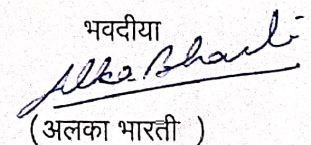 भवदीया
Alka Bharti
(अलका भारती )